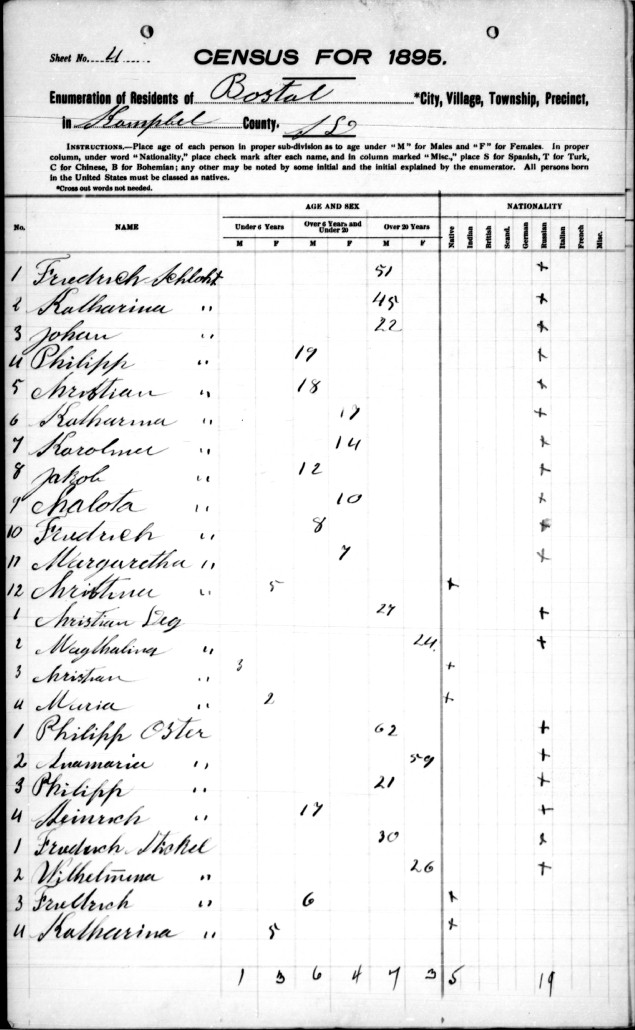 Sheet No. 4
CENSUS FOR 1895.
Enumeration of Residents of Bostal *City, Village, Township, Precinct,
in Kampbel County. S D
INSTRUCTIONS.—Place age of each person in proper sub-division as to age under "M" for Males and "F" for Females. In proper
column, under word "Nationality," place check mark after each name, and in column marked "Misc.," place S for Spanish, T for Turk,
C for Chinese, B for Bohemian; any other may be noted by some initial and the initial explained by the enumerator. All persons born
in the United States must be classed as natives.
*Cross out words not needed.
AGE AND SEX NATIONALITY
No. NAME Under 6 Years Over 6 Years and Under 20 Over 20 Years Native Indian British Scand. German Russian Italian French Misc.
M F M F M F
1 Friedrich Schloht 51 +
2 Katharina " 45 +
3 Johan " 22 +
4 Philipp " 19 +
5 Christian " 18 +
6 Katharina " 17 +
7 " 14 +
8 Jakob " 12 +
9 " 10 +
10 Fredrich " 8 +
11 Margaretha " 7 +
12 Christina " 5 +
1 Christian 27 +
2 Magthalina " 24 +
3 Christian " 3 +
4 Maria " 2 +
1 Philipp Oster 62 +
2 Anamaria " 59 +
3 Philipp " 21 +
4 Heinrich " 17 +
1 Fredrich Stickel 30 x
2 Wilhelmina " 26 +
3 Fredrich " 6 +
4 Katharina " 5 +
1 3 6 4 7 3 5 19